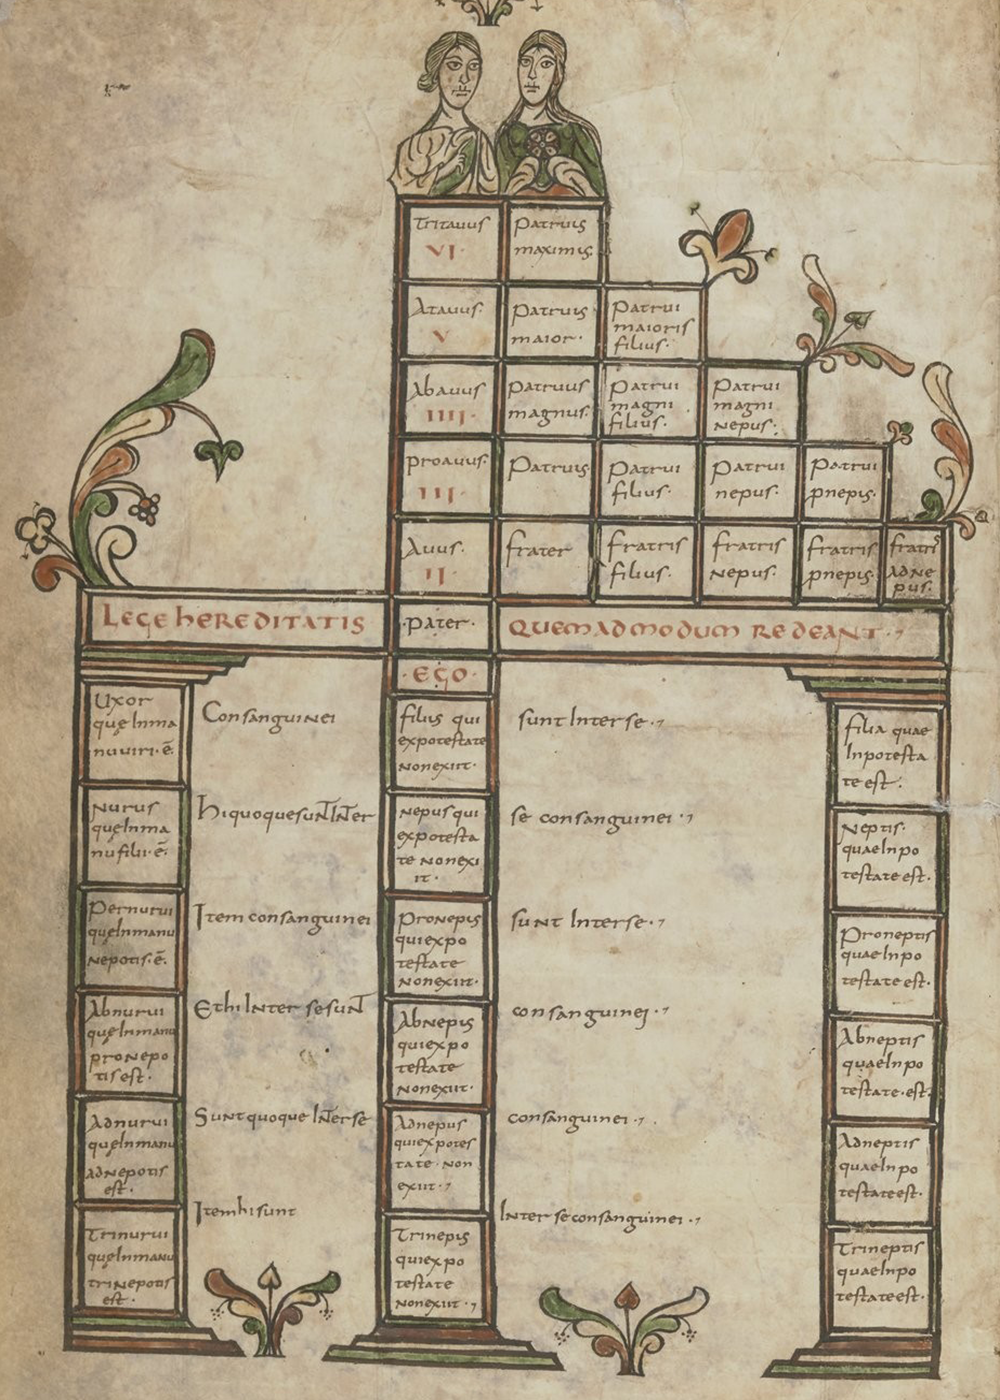 Tritauus
VI·
Patruis
maximis
Atauus·
V
Patruis
maior·
Patrui
maioris
filius·
Abauus
IIII·
Patruus
magnus·
Patrui
magni
filius·
Patrui
magni
nepus·
proauus·
III·
Patruis
Patrui
filius·
Patrui
nepus·
Patrui
pnepis·
Auus·
II·
frater
fratris
filius·
fratris
nepus·
fratris
pnepis·
fratris
adne
pus·
Lege hereditatis
·pater·
quemadmodum redeant·
·ego·
Uxor
que inma
nu uiri·ē·
Consanguinei
filius qui
expotestate
nonexiit·
sunt interse·
filia quae
inpotesta
te est·
Nurus
queinma
nu filii·ē·
hi quoque sunt inter
nepus qui
expotesta
te nonexi
it·
se consanguinei·
Neptis·
quae inpo
testate est·
Pernurui
queinmanu
nepotis·ē·
Item consanguinei
Pronepis
quiexpo
testate
nonexiit·
sunt interse·
Proneptis
quae inpo
testate est·
Abnurui
queinmanu
pronepo
tis est·
Ethi inter se sunt
Abnepis
quiexpo
testate
nonexiit·
consanguinei·
Abneptis
quae inpo
testate·est·
Adnurui
queinmanu
adnepotis
est·
Sunt quoque interse
Adnepus
quiexpotes
tate·non
exiit·
consanguinei·
Adneptis
quae inpo
testate est·
Trinurui
queinmanu
trinepotis
est·
Item hi sunt
Trinepis
quiexpo
testate
nonexiit·
Inter se consanguinei·
Trineptis
quae inpo
testate est·